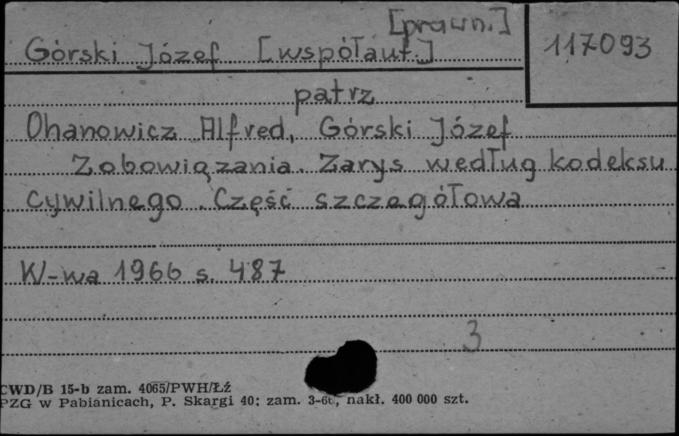 [prawn.]
Górski Józef [współaut.] 117093
patrz
Ohanowicz Alfred, Górski Józef
Zobowiązania. Zarys według kodeksu
cywilnego. Część szczegółowa
W-wa 1966 s. 487
3
CWD/B 15-b zam. 4065/PWH/Łź
PZG w Pabianicach, P. Skargi 40; zam. 3-66, nakł. 400 000 szt.